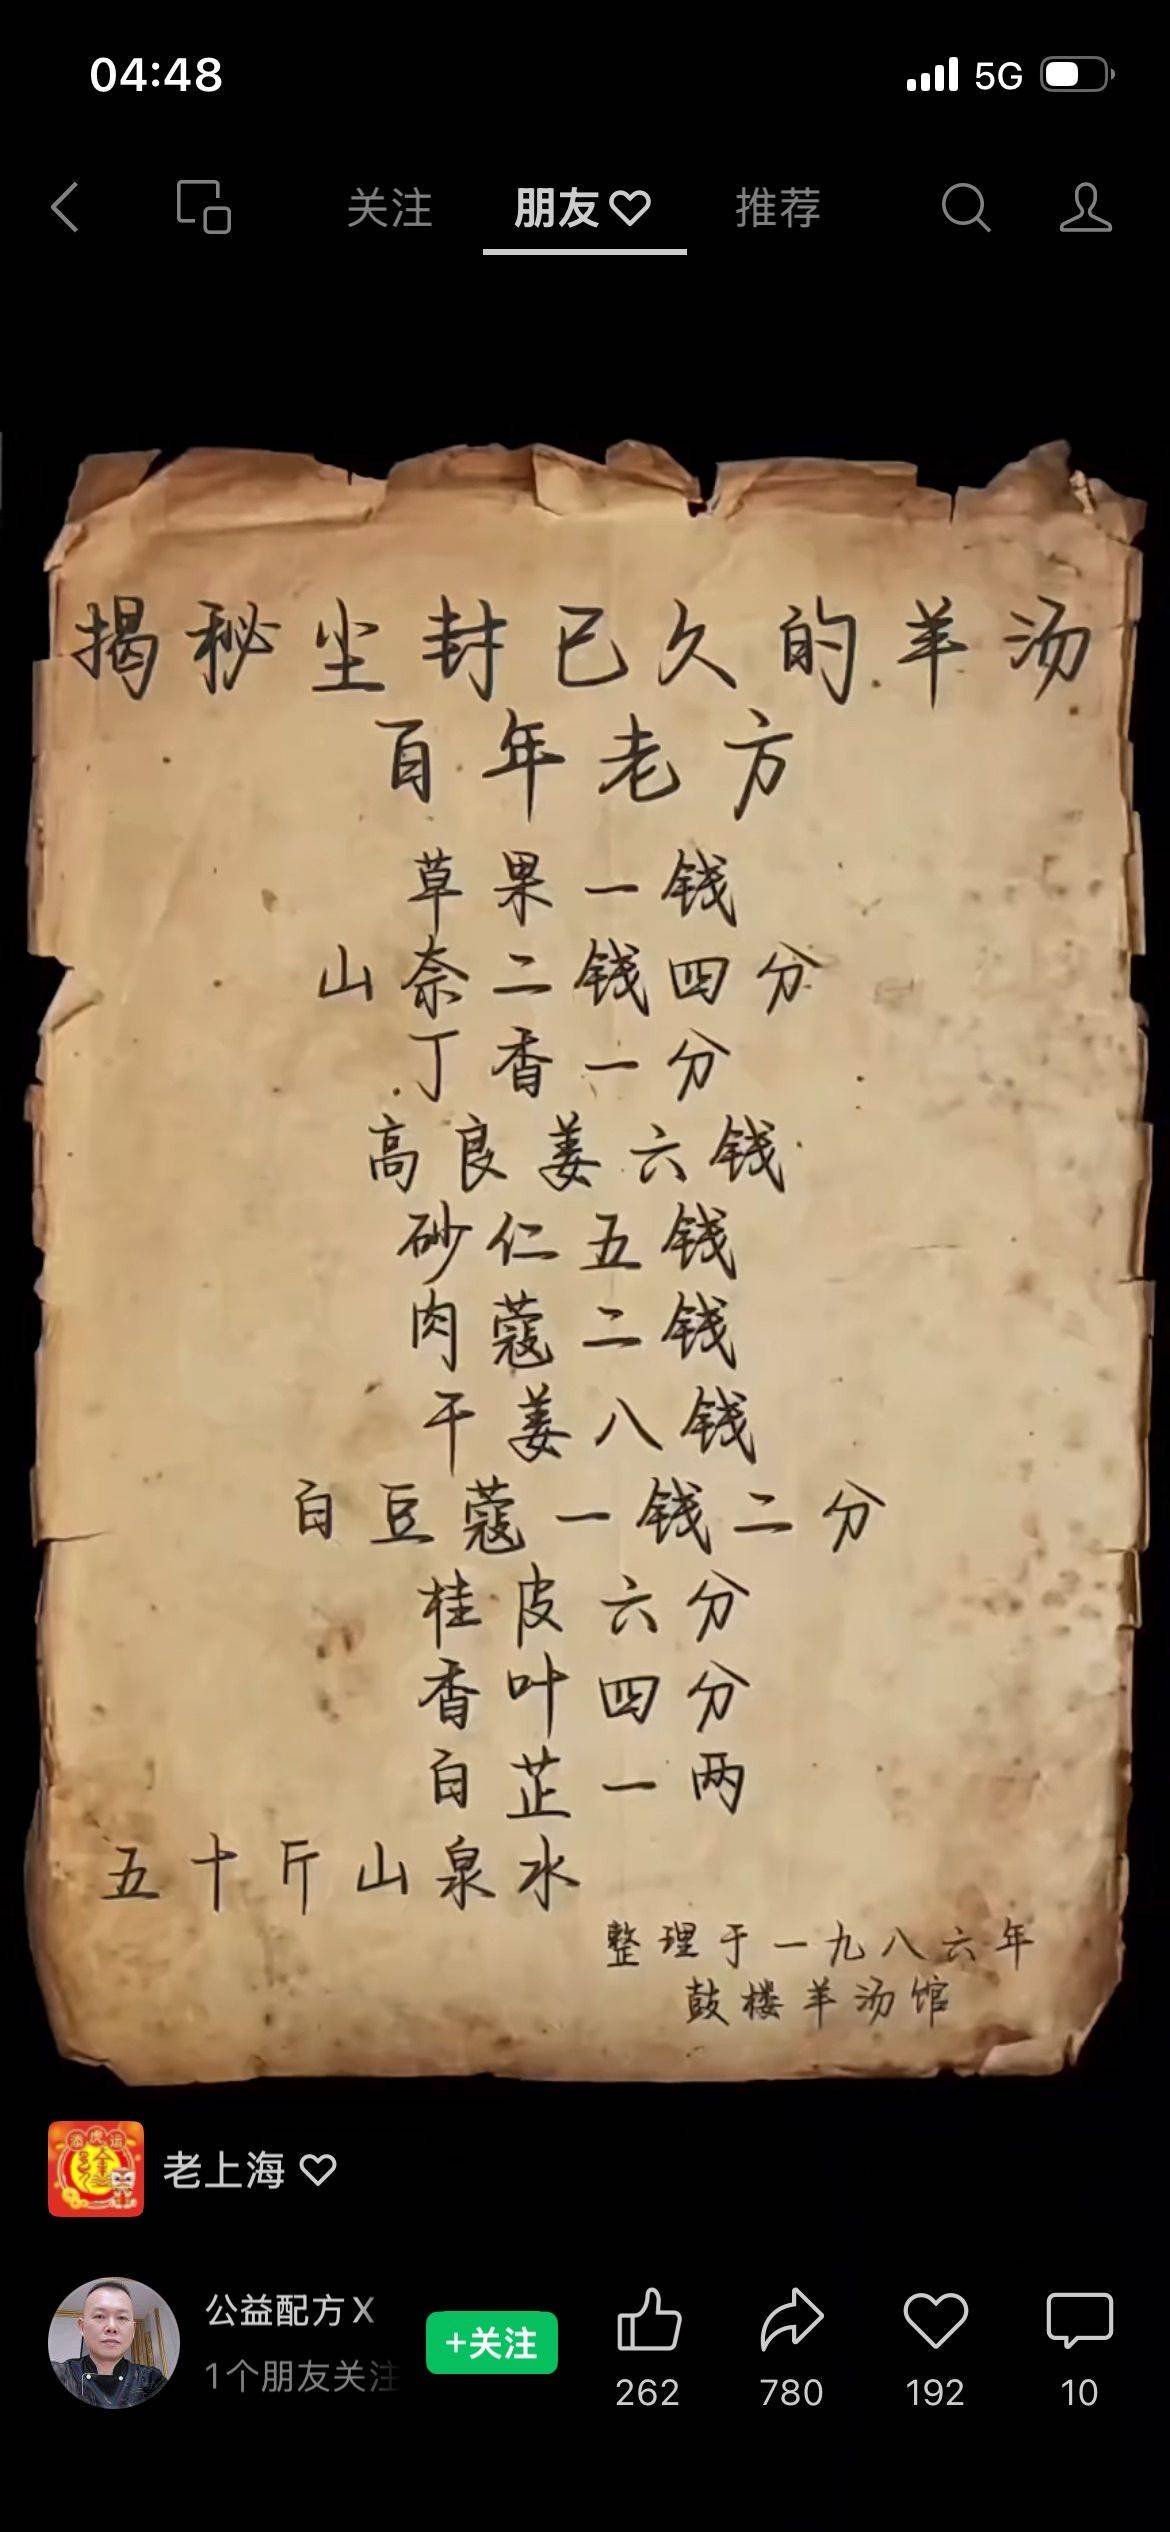 04:48
5G
关注
朋友♡
推荐
揭秘尘封已久的羊汤
百年老方
草果一钱
山奈二钱四分
丁香一分
高良姜六钱
砂仁五钱
肉蔻二钱
干姜八钱
白豆蔻一钱二分
桂皮六分
香叶四分
白芷一两
五十斤山泉水
整理于一九八六年
鼓楼羊汤馆
老上海
公益配方X
1个朋友关注
+关注
262
780
192
10